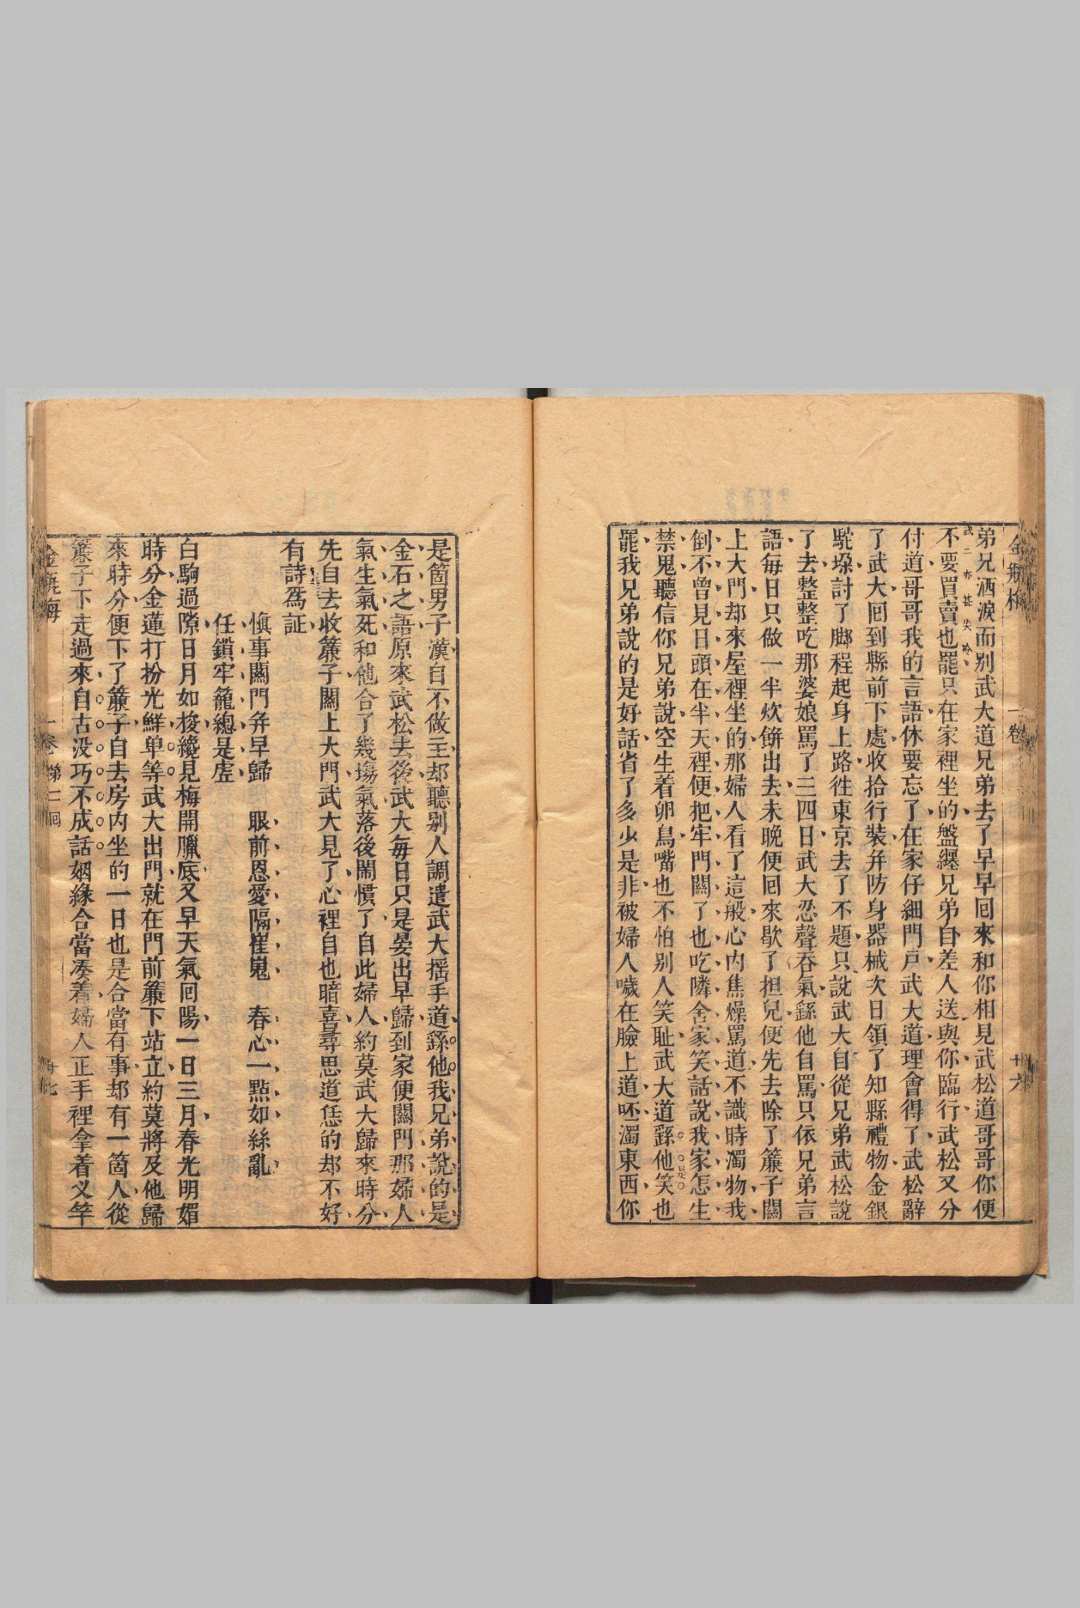 弟兄洒淚而別武大道兄弟去了早早回來和你相見武松道哥哥你便
武二亦甚尖吟
不要買賣也罷只在家裡坐的盤纏兄弟自差人送與你臨行武松又分
付道哥哥我的言語休要忘了在家仔細門戸武大道理會得了武松辭
了武大囘到縣前下處收拾行裝并防身器械次日領了知縣禮物金銀
駝垛討了脚程起身上路徃東京去了不題只說武大自從兄弟武松說
了去整整吃那婆娘罵了三四日武大忍聲吞氣繇他自罵只依兄弟言
語每日只做一半炊餅出去未晚便囘來歇了担兒便先去除了簾子關
上大門却來屋裡坐的那婦人看了這般心内焦燥罵道不識時濁物我
倒不曾見日頭在半天裡便把牢門關了也吃隣舍家笑話說我家怎生
禁鬼聽信你兄弟說空生着卵鳥嘴也不怕別人笑耻武大道繇他笑也
罷我兄弟說的是好話省了多少是非被婦人噦在臉上道呸濁東西你
金瓶梅
一卷
十六
是箇男子漢自不做主却聽別人調遣武大揺手道繇他我兄弟說的是
金石之語原來武松去後武大每日只是晏出早歸到家便關門那婦人
氣生氣死和他合了幾塲氣落後鬧慣了自此婦人約莫武大歸來時分
先自去收簾子關上大門武大見了心裡自也暗喜尋思道恁的却不好
有詩爲証
愼事關門并早歸　眼前恩愛隔崔嵬　春心一點如絲亂
任鎖牢籠總是虛
白駒過隙日月如梭纔見梅開臘底又早天氣囘陽一日三月春光明媚
時分金蓮打扮光鮮单等武大出門就在門前簾下站立約莫將及他歸
來時分便下了簾子自去房内坐的一日也是合當有事却有一箇人從
簾子下走過來自古没巧不成話姻緣合當凑着婦人正手裡拿着乂竿
金瓶梅
一卷　第二囘
十七